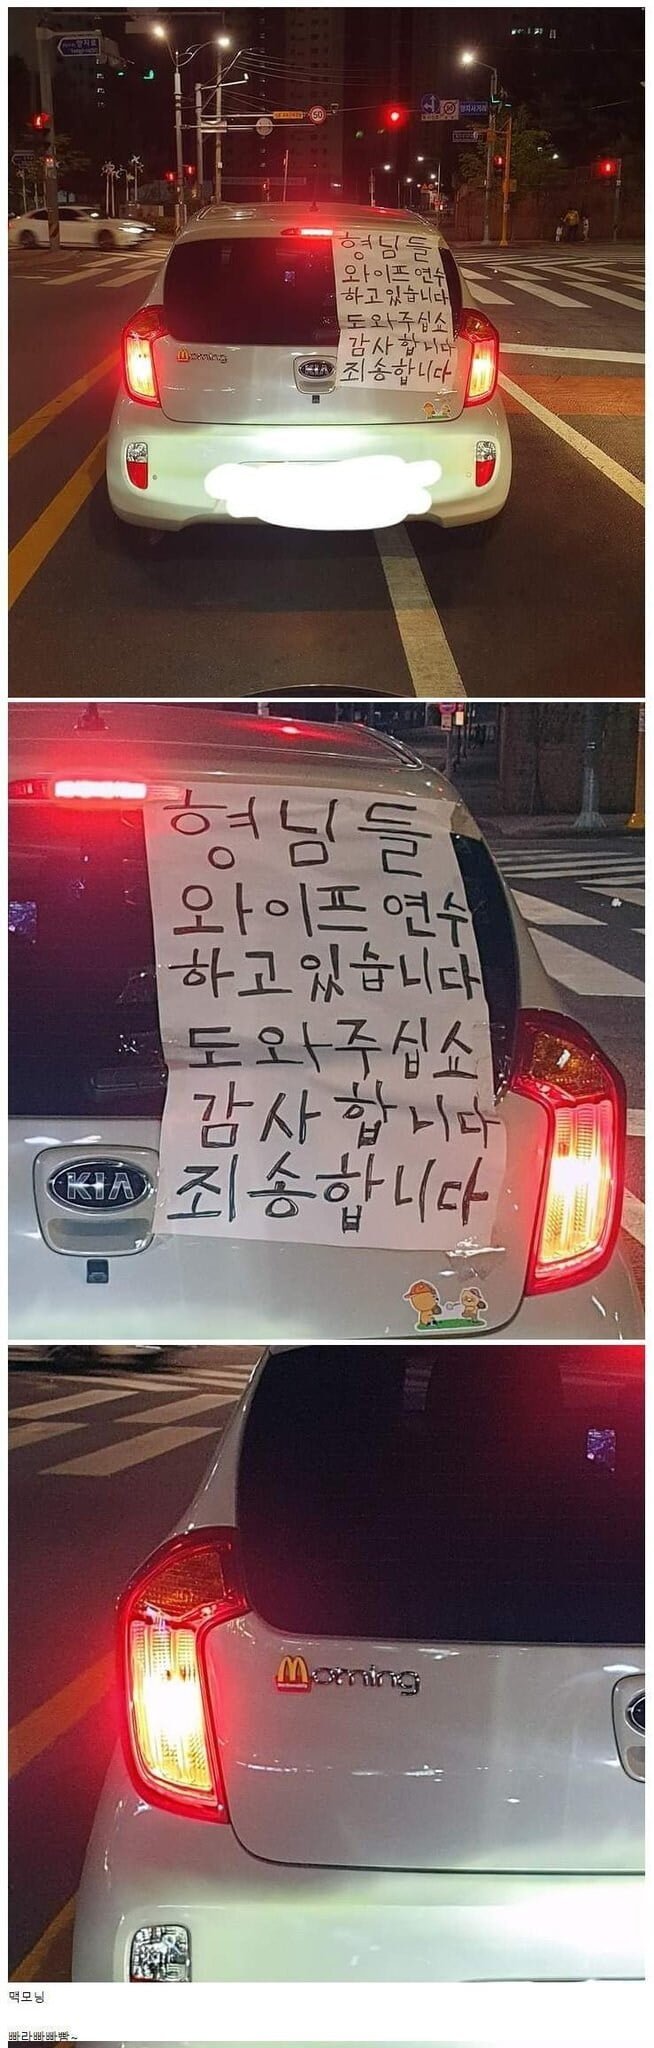 양지로
50
양지사거리
형님들
와이프 연수
하고 있습니다
도와주십쇼
감사합니다
죄송합니다
Morning
KIA
형님들
와이프 연수
하고있습니다
도와주십쇼
감사합니다
죄송합니다
KIA
Morning
맥모닝
빠라빠빠빰~